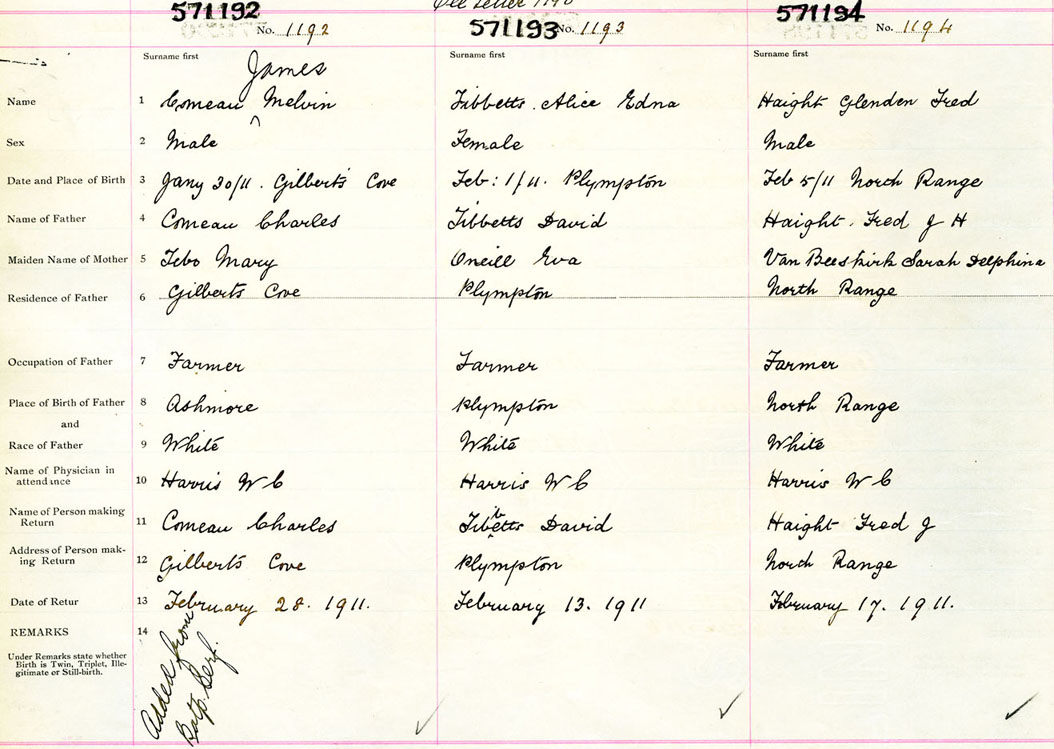 571192 571193 571194
No. 1192 No. 1193 No. 1194
Surname first Surname first Surname first
James
Name 1 Comeau ^ Melvin Tibbetts. Alice Edna Haight Glenden Fred
Sex 2 Male Female Male
Date and Place of Birth 3 Jany 30/11. Gilberts Cove Feb: 1/11. Plympton Feb 5/11 North Range
Name of Father 4 Comeau Charles Tibbetts David Haight. Fred J H
Maiden Name of Mother 5 Tebo Mary Oneill Eva Van Beeskirk Sarah Delphina
Residence of Father 6 Gilberts Cove Plympton North Range
Occupation of Father 7 Farmer Farmer Farmer
Place of Birth of Father 8 Ashmore Plympton North Range
and
Race of Father 9 White White White
Name of Physician in
attendance 10 Harris W C Harris W C Harris W C
Name of Person making
Return 11 Comeau Charles Tibbetts David Haight Fred J
Address of Person mak-
ing Return 12 Gilberts Cove Plympton North Range
Date of Retur 13 February 28. 1911. February 13. 1911 February 17. 1911.
REMARKS 14
Under Remarks state whether
Birth is Twin, Triplet, Ille-
gitimate or Still-birth.
Added from
Bap. Cerf.